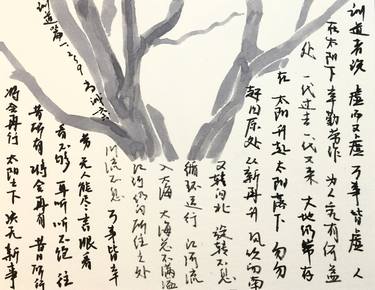 训道者说 虚而又虚 万事皆虚 人
在太阳下辛勤劳作 为人究有何益
处 一代过去一代又来 大地仍常存
在 太阳升起 太阳落下 匆匆
赶回原处 从新再升 风吹向南
又转向北 旋转不息
循环运行 江河流
入海 大海总不满溢
江河仍向所往之处
川流不息 万事皆辛
劳 无人能尽言 眼看
看不够 耳听 听不饱 往
昔所有 将会再有 昔日所行
将会再行 太阳之下 决无新事
训道篇一2-9